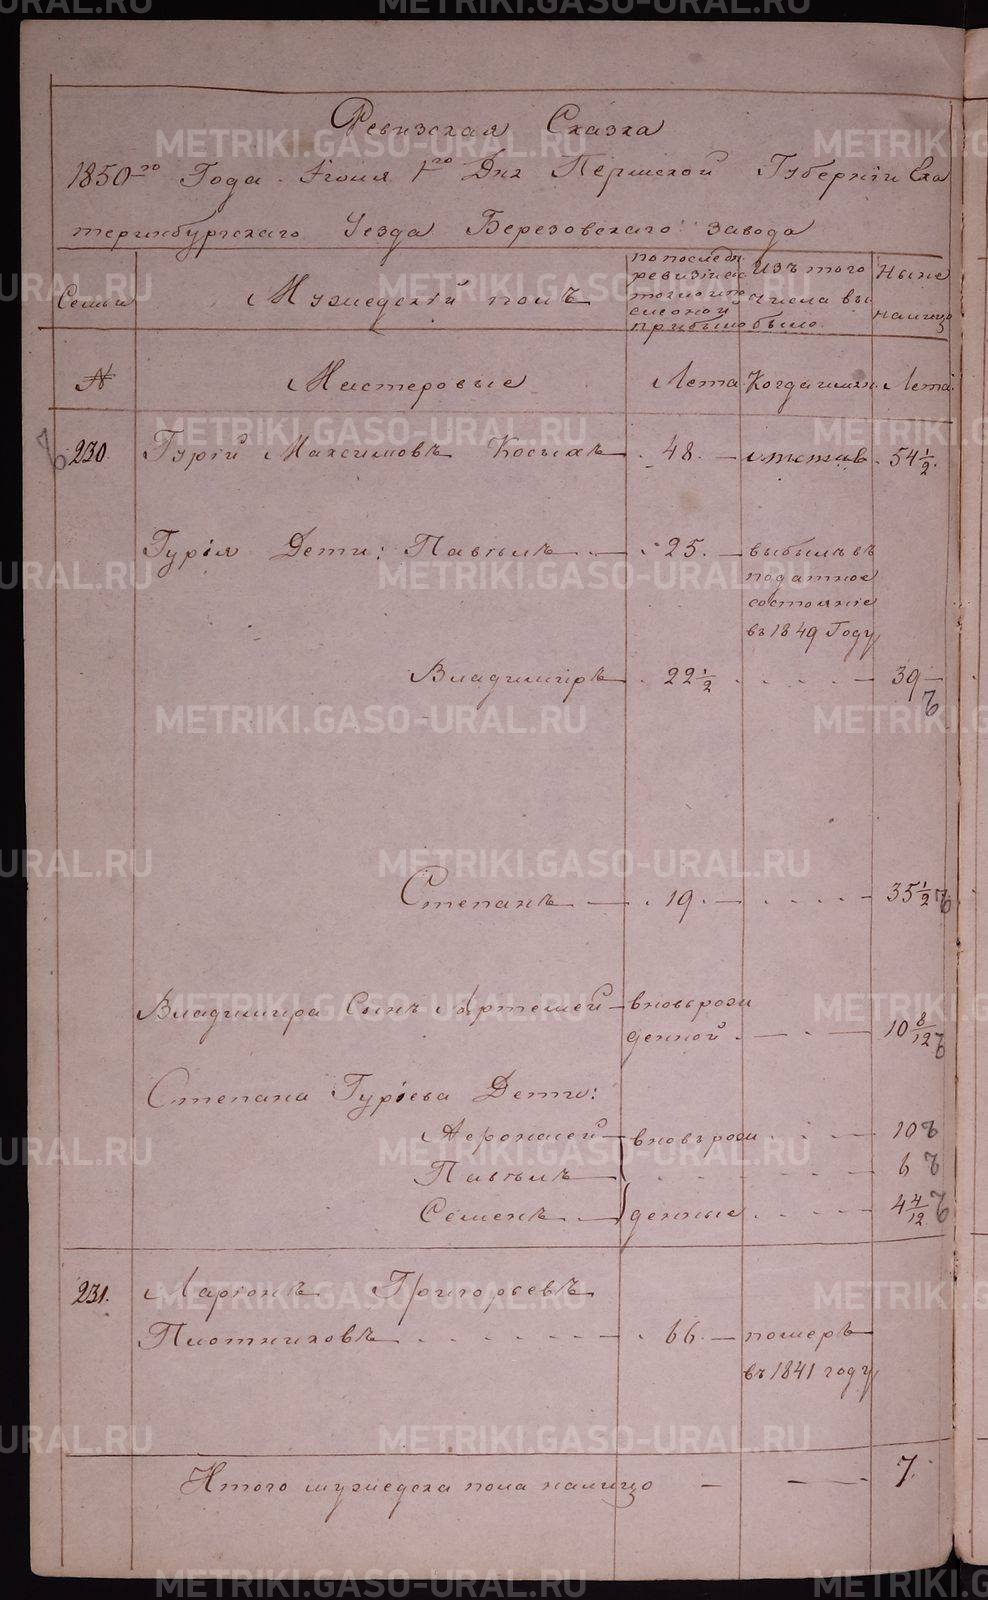 Ревизская Сказка
1850-го Года Iюня 1го Дня Пермской Губернiи Ека
теринбургскаго Уезда Березовскаго завода
Семьи
Мужедскiй полъ
по последн.
ревизiи сос
тояло и по
сле оной
прибыло
Изъ того
числа вы
было.
Ныне
налицо
№
Мастеровые
Лета
Когда имян.
Лета
230.
Гурiй Максимовъ Косыхъ
48.
54 1/2.
Гурiя Дети: Павелъ
25.
выбылъ въ
податное
состоянiе
въ 1849 Году
Владимiръ
22 1/2
39
Степанъ
19.
35 1/2
Владимiра Сынъ Артемей
вновьрож
денной
10 8/12
Степана Гурiева Дети:
Афонасей
вновьрож
10
Павелъ
6
Семенъ
денные
4 4/12
231.
Ларiонъ Григорьевъ
Плотниковъ
66.
померъ
въ 1841 году
Итого мужедска пола налицо
7.
METRIKI.GASO-URAL.RU